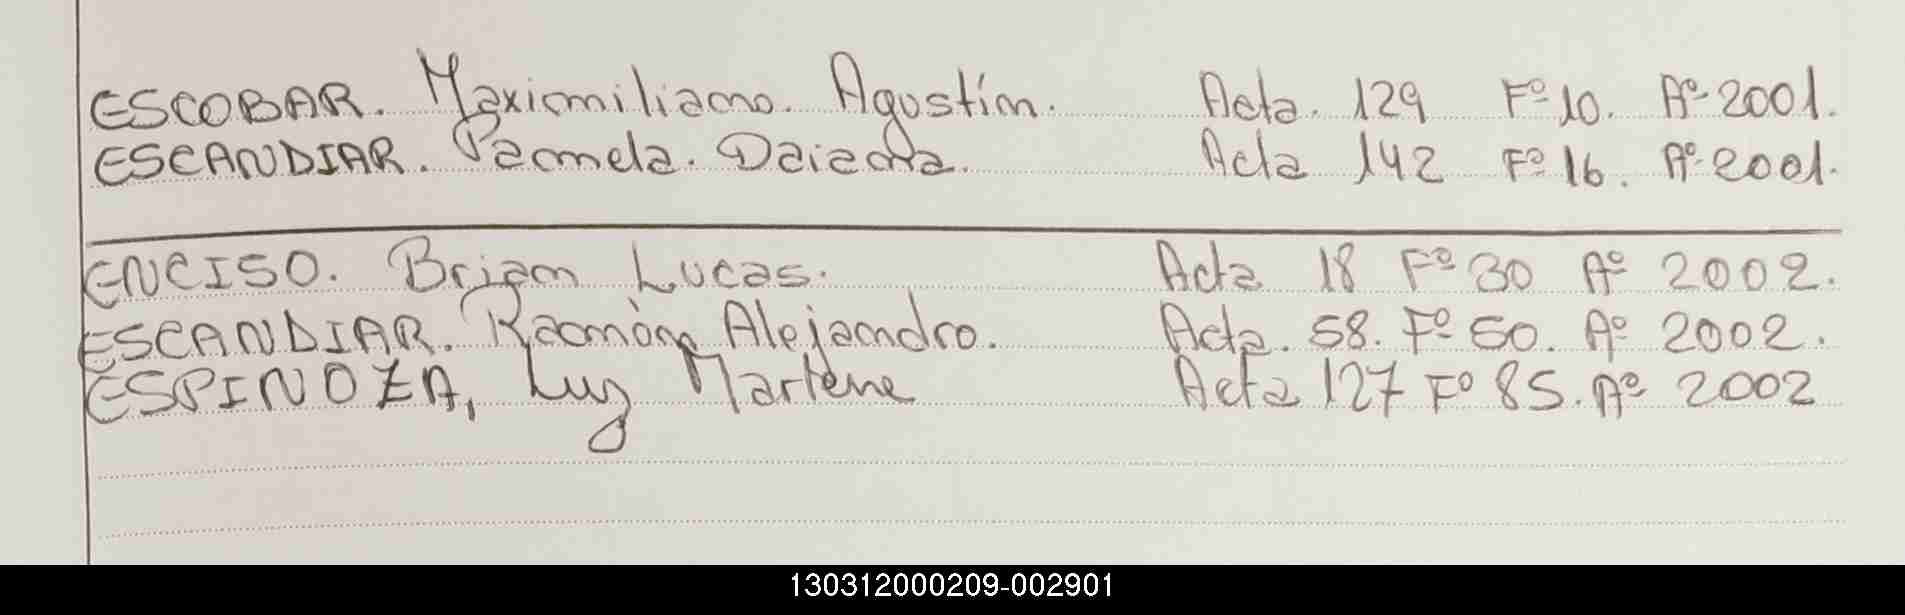 ESCOBAR. Maximiliano. Agustín. Acta. 129 Fº 10. Aº 2001.
ESCANDIAR. Pamela. Daiana. Acta 142 Fº 16. Aº 2001.
ENCISO. Brian Lucas. Acta 18 Fº 30 Aº 2002.
ESCANDIAR. Ramón Alejandro. Acta. 58. Fº 50. Aº 2002.
ESPINOZA, Luz Marlene Acta 127 Fº 85. Aº 2002
130312000209-002901